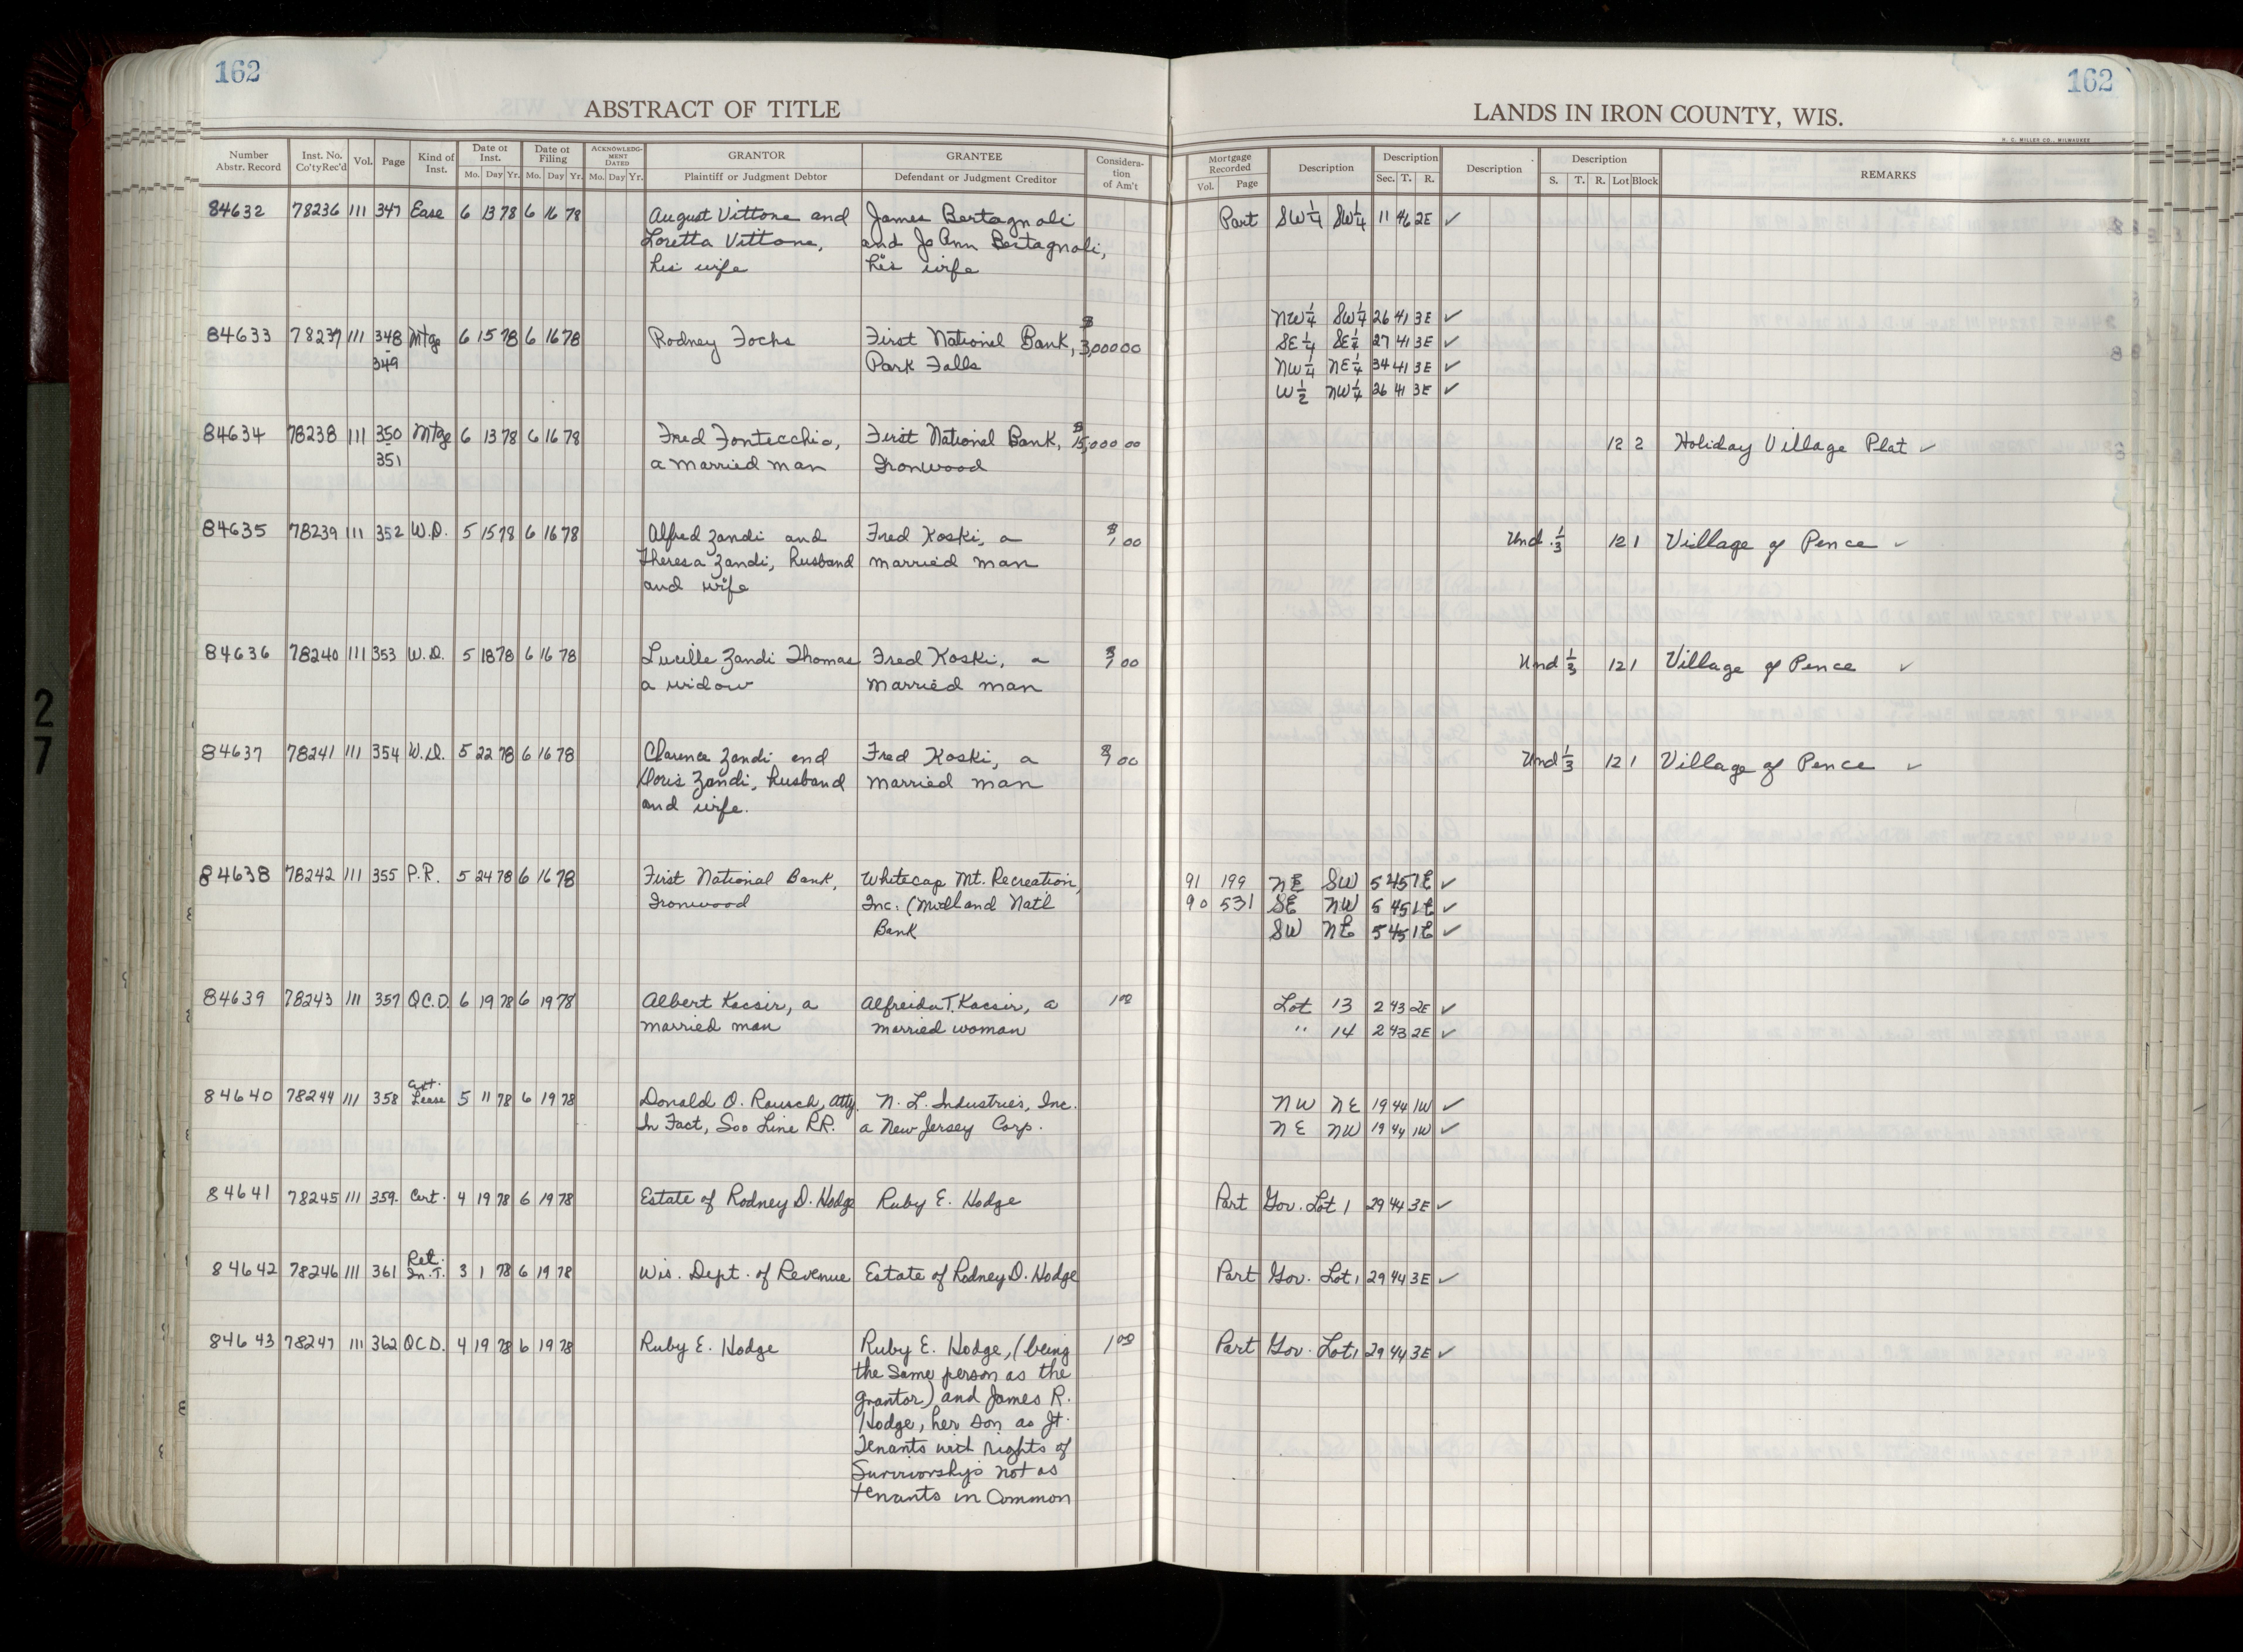 162
162
ABSTRACT OF TITLE
LANDS IN IRON COUNTY, WIS.
H. C. MILLER CO., MILWAUKEE
Number Abstr. Record Inst. No. Co'ty Rec'd Vol. Page Kind of Inst. Date of Inst. Mo. Day Yr. Date of Filing Mo. Day Yr. ACKNOWLEDGMENT DATED Mo. Day Yr. GRANTOR Plaintiff or Judgment Debtor GRANTEE Defendant or Judgment Creditor Consideration of Am't Mortgage Recorded Vol. Page Description Description Sec. T. R. Description Description S. T. R. Lot Block REMARKS
84632 78236 111 347 Ease 6 13 78 6 16 78 August Vittone and James Bertagnoli Part SW¼ SW¼ 11 46 2E ✓
Loretta Vittone, and JoAnn Bertagnoli,
his wife his wife
NW¼ SW¼ 26 41 3E ✓
84633 78237 111 348 Mtge 6 15 78 6 16 78 Rodney Fochs First National Bank, $3,000 00 SE¼ SE¼ 27 41 3E ✓
349 Park Falls NW¼ NE¼ 34 41 3E ✓
W½ NW¼ 26 41 3E ✓
84634 78238 111 350 Mtge 6 13 78 6 16 78 Fred Fontecchio, First National Bank, $15,000 00 12 2 Holiday Village Plat ✓
351 a married man Ironwood
84635 78239 111 352 W.D. 5 15 78 6 16 78 Alfred Zandi and Fred Koski, a $1 00 Und. ⅓ 12 1 Village of Pence ✓
Theresa Zandi, husband married man
and wife
84636 78240 111 353 W.D. 5 18 78 6 16 78 Lucille Zandi Thomas Fred Koski, a $1 00 Und ⅓ 12 1 Village of Pence ✓
a widow married man
84637 78241 111 354 W.D. 5 22 78 6 16 78 Clarence Zandi and Fred Koski, a $1 00 Und ⅓ 12 1 Village of Pence ✓
Doris Zandi, husband married man
and wife.
84638 78242 111 355 P.R. 5 24 78 6 16 78 First National Bank, Whitecap Mt. Recreation, 91 199 NE SW 5 45 1E ✓
Ironwood Inc. (Midland Natl 90 531 SE NW 5 45 1E ✓
Bank SW NE 5 45 1E ✓
84639 78243 111 357 Q.C.D. 6 19 78 6 19 78 Albert Kacsir, a Alfreida T. Kacsir, a 1 00 Lot 13 2 43 2E ✓
married man married woman " 14 2 43 2E ✓
84640 78244 111 358 Lease 5 11 78 6 19 78 Donald O. Rausch, Atty. N. L. Industries, Inc. NW NE 19 44 1W ✓
In Fact, Soo Line RR. a New Jersey Corp. NE NW 19 44 1W ✓
84641 78245 111 359. Cert. 4 19 78 6 19 78 Estate of Rodney D. Hodge Ruby E. Hodge Part Gov. Lot 1 29 44 3E ✓
Ret.
84642 78246 111 361 In. T. 3 1 78 6 19 78 Wis. Dept. of Revenue Estate of Rodney D. Hodge Part Gov. Lot 1 29 44 3E ✓
84643 78247 111 362 QCD. 4 19 78 6 19 78 Ruby E. Hodge Ruby E. Hodge, (being 1 00 Part Gov. Lot 1 29 44 3E ✓
the same person as the
grantor) and James R.
Hodge, her son as Jt.
Tenants with rights of
Survivorship not as
tenants in Common
27